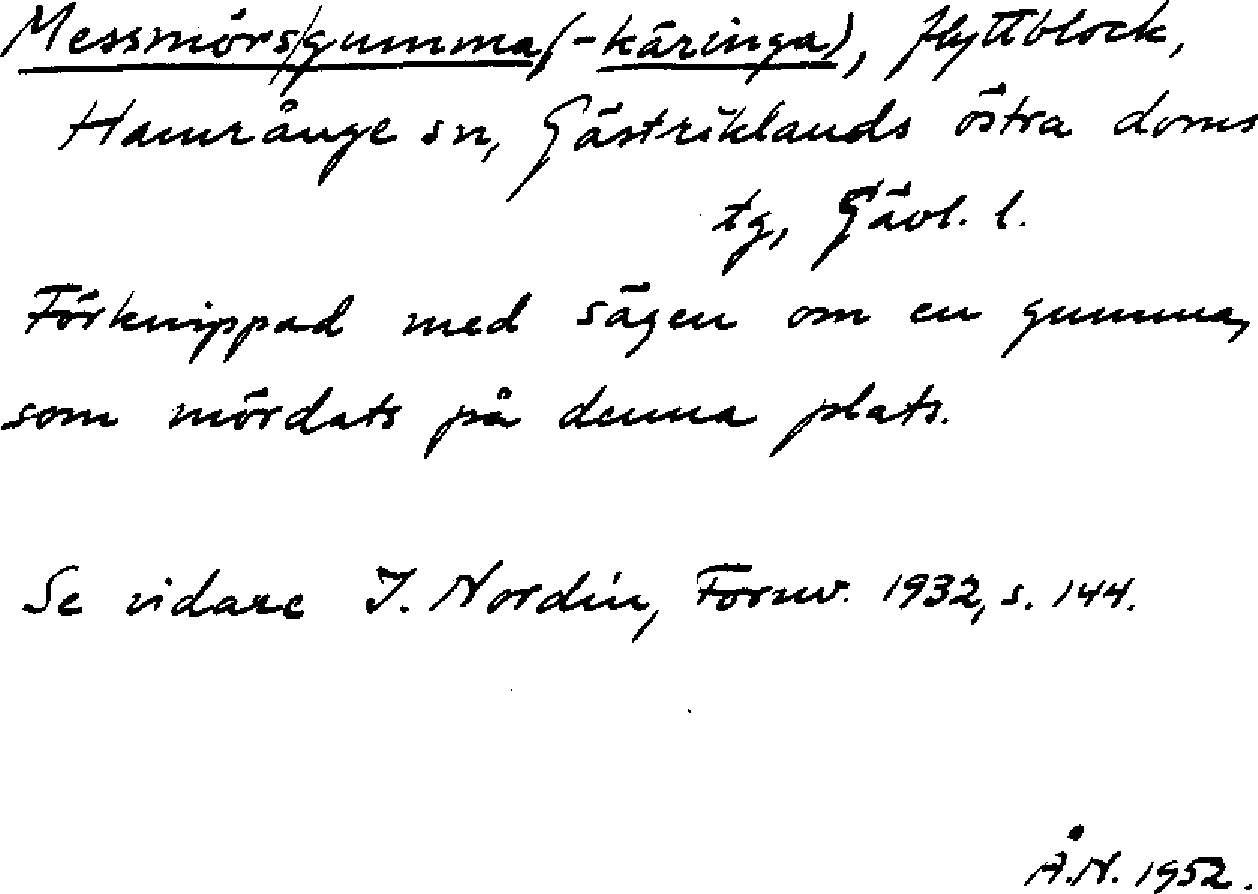 Messmörs/gumma, (-käringa), flyttblock,
Hamrånge sn, Gästriklands östra doms
tg, Gävl. l.
Förknippad med sägen om en gumma,
som mördats på denna plats.
Se vidare I. Nordin, Fornv. 1932, s. 144.
Å.N. 1952.